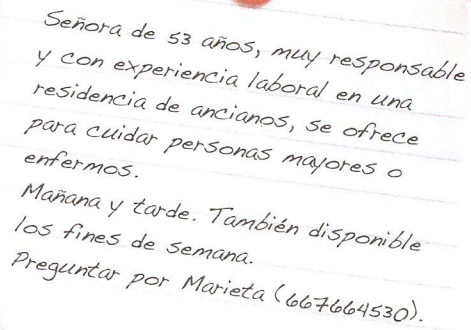 Señora de 53 años, muy responsable
y con experiencia laboral en una
residencia de ancianos, se ofrece
para cuidar personas mayores o
enfermos.
Mañana y tarde. También disponible
los fines de semana.
Preguntar por Marieta (667664530).